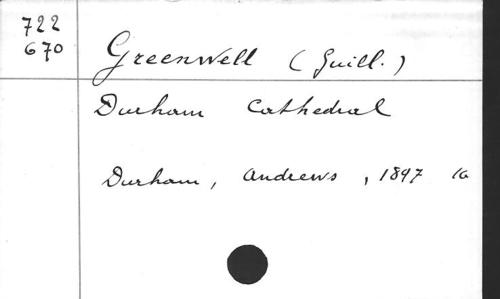 722
670
Greenwell (Guill.)
Durham Cathedral
Durham, Andrews, 1897